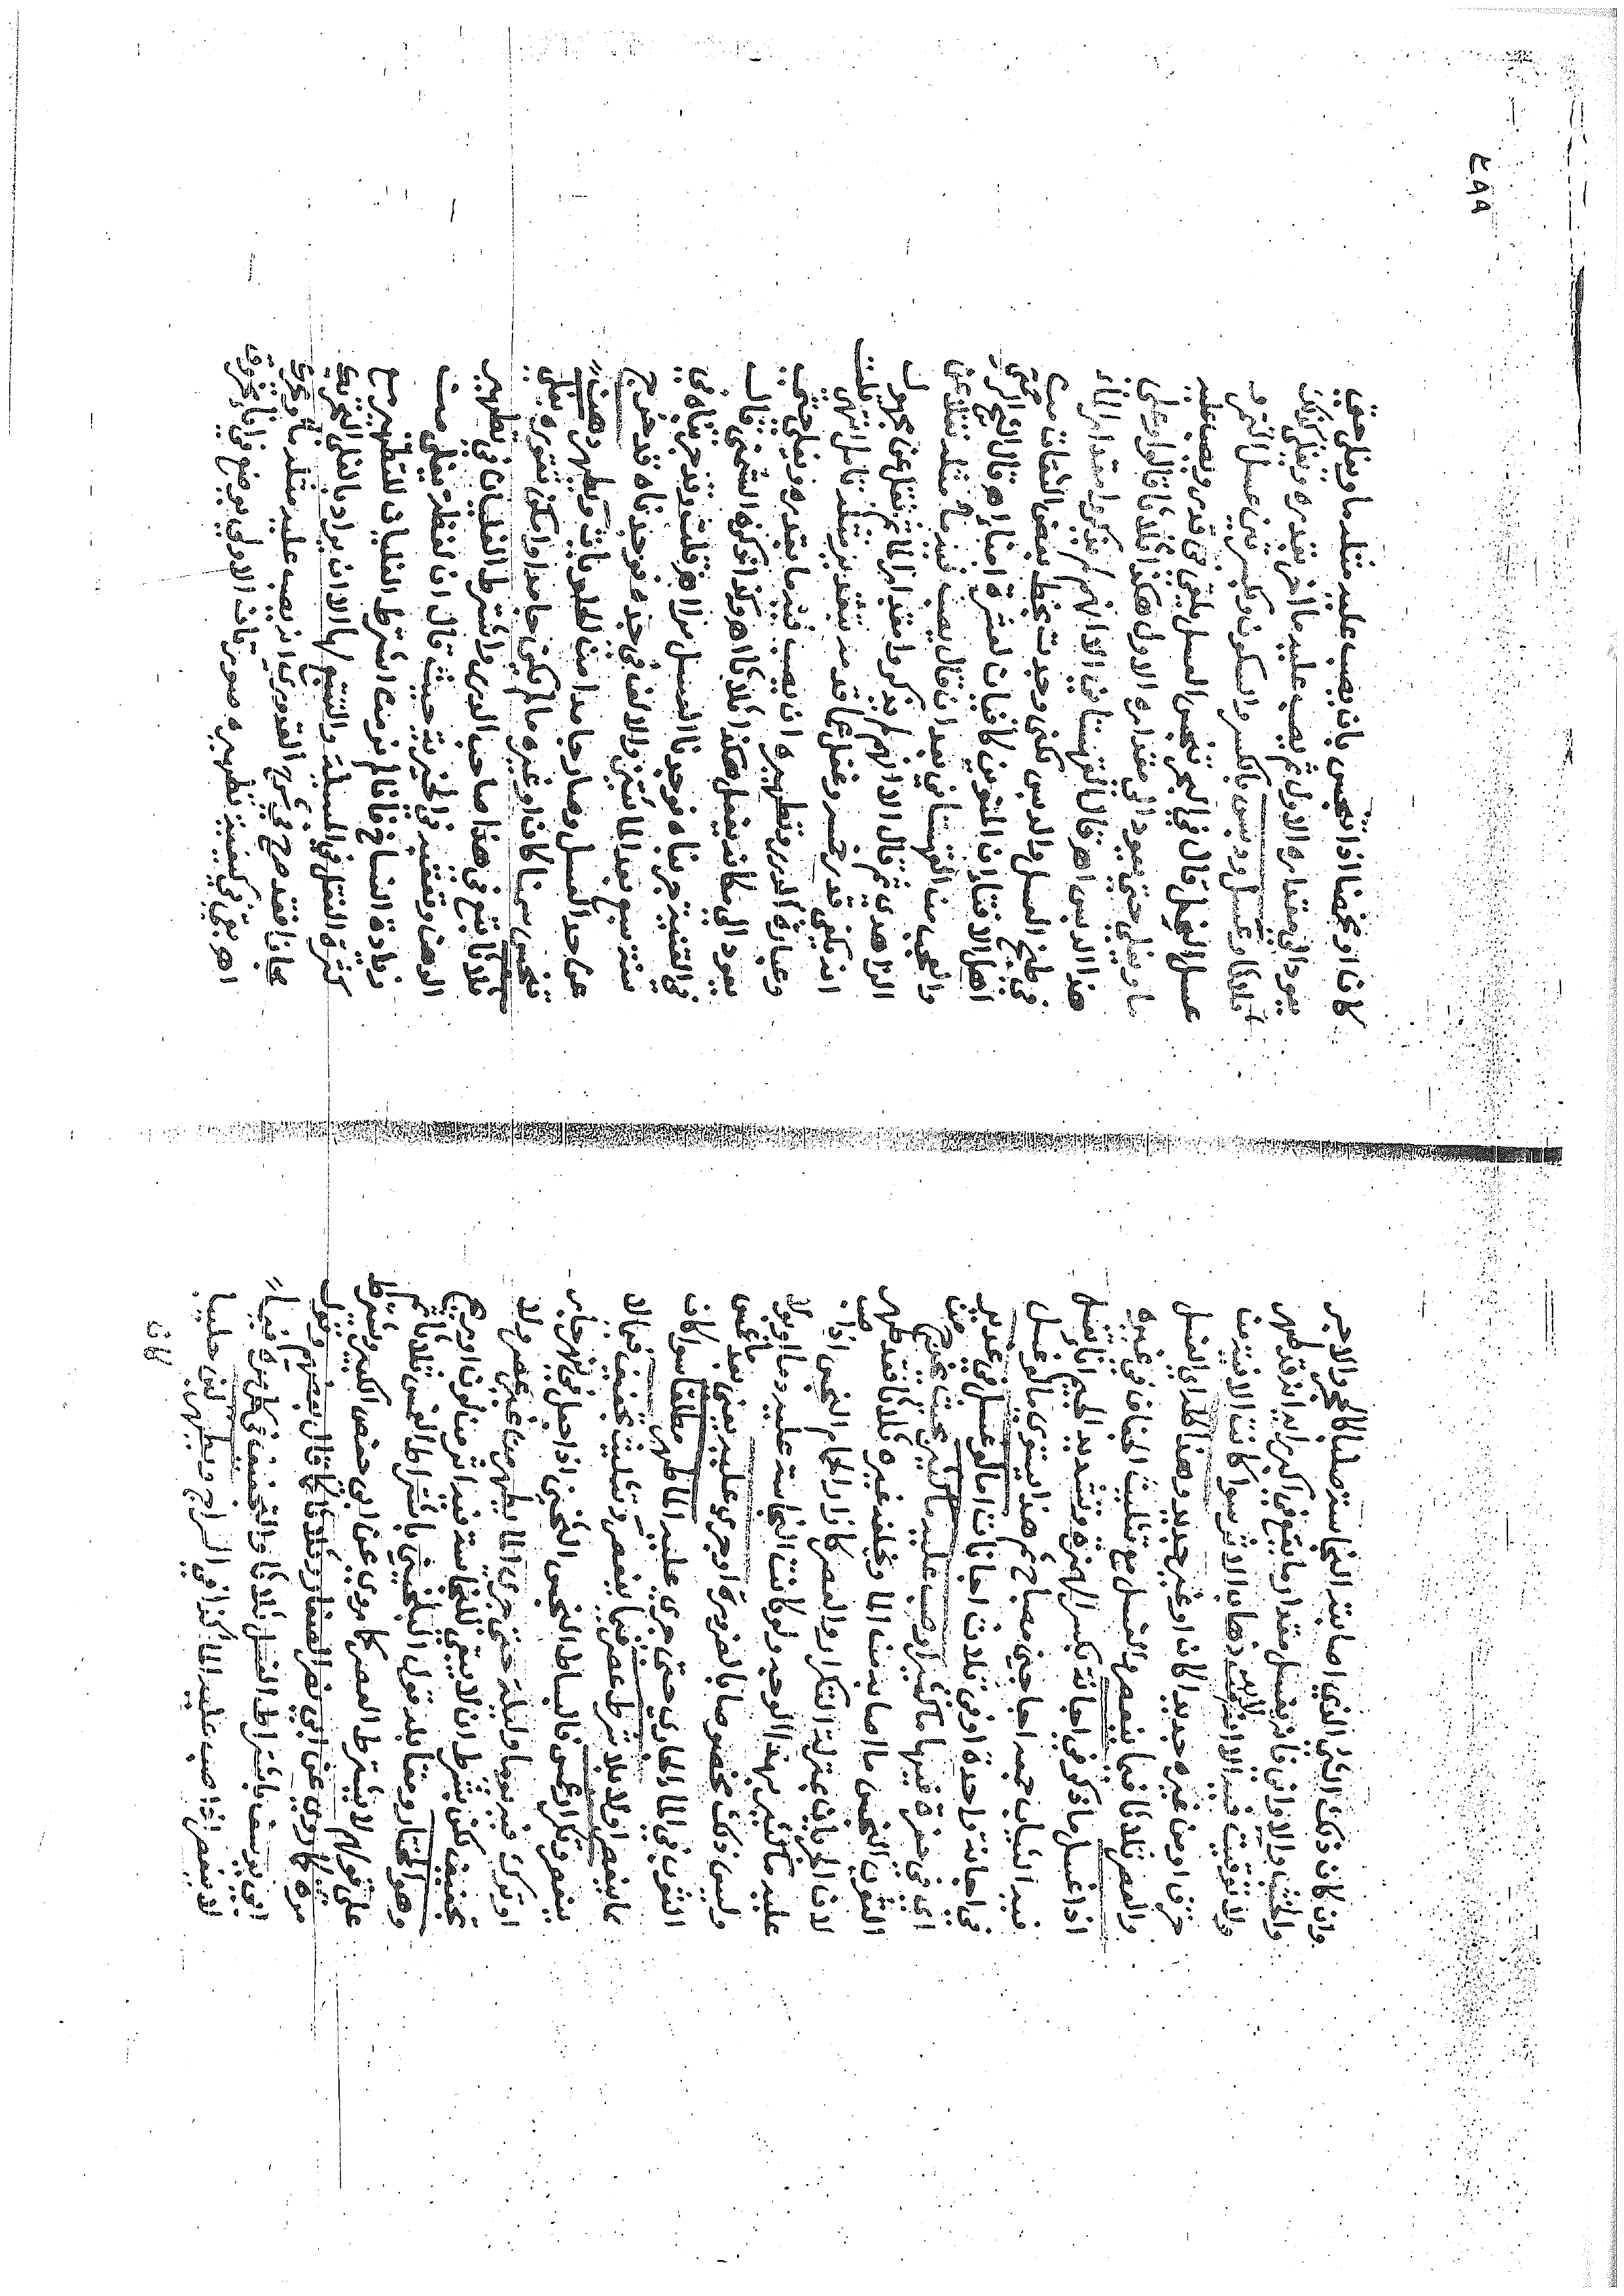 وان كان ذلك الشئ الذي اصابته النجاسة صلبا كالحجر والاجر
والخشب والاواني فانه يغسل مقدار ما يقع في اكبر رايه انه قد طهر
ولا توقيت فيه ذهاب الاثر سوا كانت الانية من
خزف او من غيره جديدا كان او غير جديد وهذا كله اي الغسل
والعصر ثلاثا فيما ينعصر والغسل مع تثليث الجفاف في غيره
اذا غسل ما ذكر في اجانة بكسر الهمزة وتشديد الجيم انا يغسل
فيه الثياب جمعه اجاجين مصباح ثم هذا يستوي ما لو غسل
في اجانة واحدة او في ثلاث اجانات اما لو غسل في غدير
اي في حفرة فيها ما كثير او صب عليه ما كثير بحيث يخرج من
الثوب النجس ما اصابه من الما ويخلفه غيره ثلاثا فقد طهر
لان الجريان بمنزلة التكرار والعصر كازار الحمام النجس اذا صب
عليه ما كثير بهذا الوجه ولو كانت النجاسة عليه دما او بولا
وليس ذلك مخصوصا بالضرورة او جري عليه يعني بعد ما غمس
الثوب في الما الجاري حتى جري عليه الما طهر مطلقا سوا كان
مما ينعصر اولا بلا شرط عصر فيما ينعصر وتثليث تجفيف فيما لا
ينعصر وتكرار غمس فالبساط النجس الثخين اذا جعل في نهر جار
او ترك فيه يوما وليلة حتى جري الما يطهر من غير عصر ولا
تجفيف لكن بشرط ان لا يبقي للنجاسة فيه اثر من لون او ريح
وهو المختار ومقابله قول البلخي باشتراط الغمس ثلاثا ثم
علي قولهم لا يشترط العصر كما روي عن ابي حفص الكبير ويشترط
مرة كما روي عن ابي نصر الصفار وثلاثا كما قال بعضهم وقول
ابي يوسف باشتراط الغسل ثلاثا والتجفيف في كل مرة فيما
لا ينعصر اذا صب عليه الما كذا في السراج ويطهر لبن حليبا
كان
٤٩٩
كان او مخيضا اذا تنجس بان يصب عليه مثله ما ويغلي حتى
يعود الي مقداره الاول ثم يصب عليه ما اخر بقدره ويغلي كذلك
ثلاثا وعسل ودبس بالكسر والسكون وبكسرتين عسل التمر و
عسل النحل قال في البحر تنجس العسل يلقي في قدر ويصب عليه
ما ويغلي حتى يعود الي مقداره الاول هكذا ثلاثا قالوا وعلي
هذا الدبس اهـ قال القهستاني الا انهم لم يذكروا مقدار الما
في طبخ العسل والدبس لكني وجدت بخط بعض الثقات من
اهل الافتا ان المنوين كافيان لعشرة امنا اهـ قال الخير الرملي
والعجب من القهستاني بعد ان قال يصب فيه ما مثله نقلا عن
الزاهدي ثم قال الا انهم لم يذكروا مقدار الما ثم نقل عن مجهول
انه يكفي قدر خمسه وغفل عما قدمه بتقديره بمثله تامل انتهي قلت
وعبارة الدرر وتطهيره ان يصب فيه ما بقدره ويغلي حتى
يعود الي مكانه يفعل هكذا ثلاثا اهـ وكذا ذكره الشمني قال
في القنية جربناه فوجدنا العسل مرا اهـ قلت وقد جربناه في
سنة سبع بعد المائتين والالف في جده فوجدناه قد خرج
عن حد العسل وصار جامدا من الحلويات ويطهر دهن
تنجس سمنا كان او غيره ما لم يكن جامدا وامكن تقويره يغلي
ثلاثا تبع في هذا صاحب الدرر واشترط الغليان في تطهير
الدهن وتعقبه في الخيرية حيث قال ان لفظه يغلي من
زيادة الناسخ فانا لم نر من اشترط الغليان لتطهير مع
كثرة النقل في المسئلة والتتبع لها الا ان يراد بالغلي التحريك
مجازا فقد صرح في شرح القدوري انه يصب عليه مثله ما ويحرك
اهـ بقي في كيفية تطهيره صورتان الاولي يوضع في انا يخرق